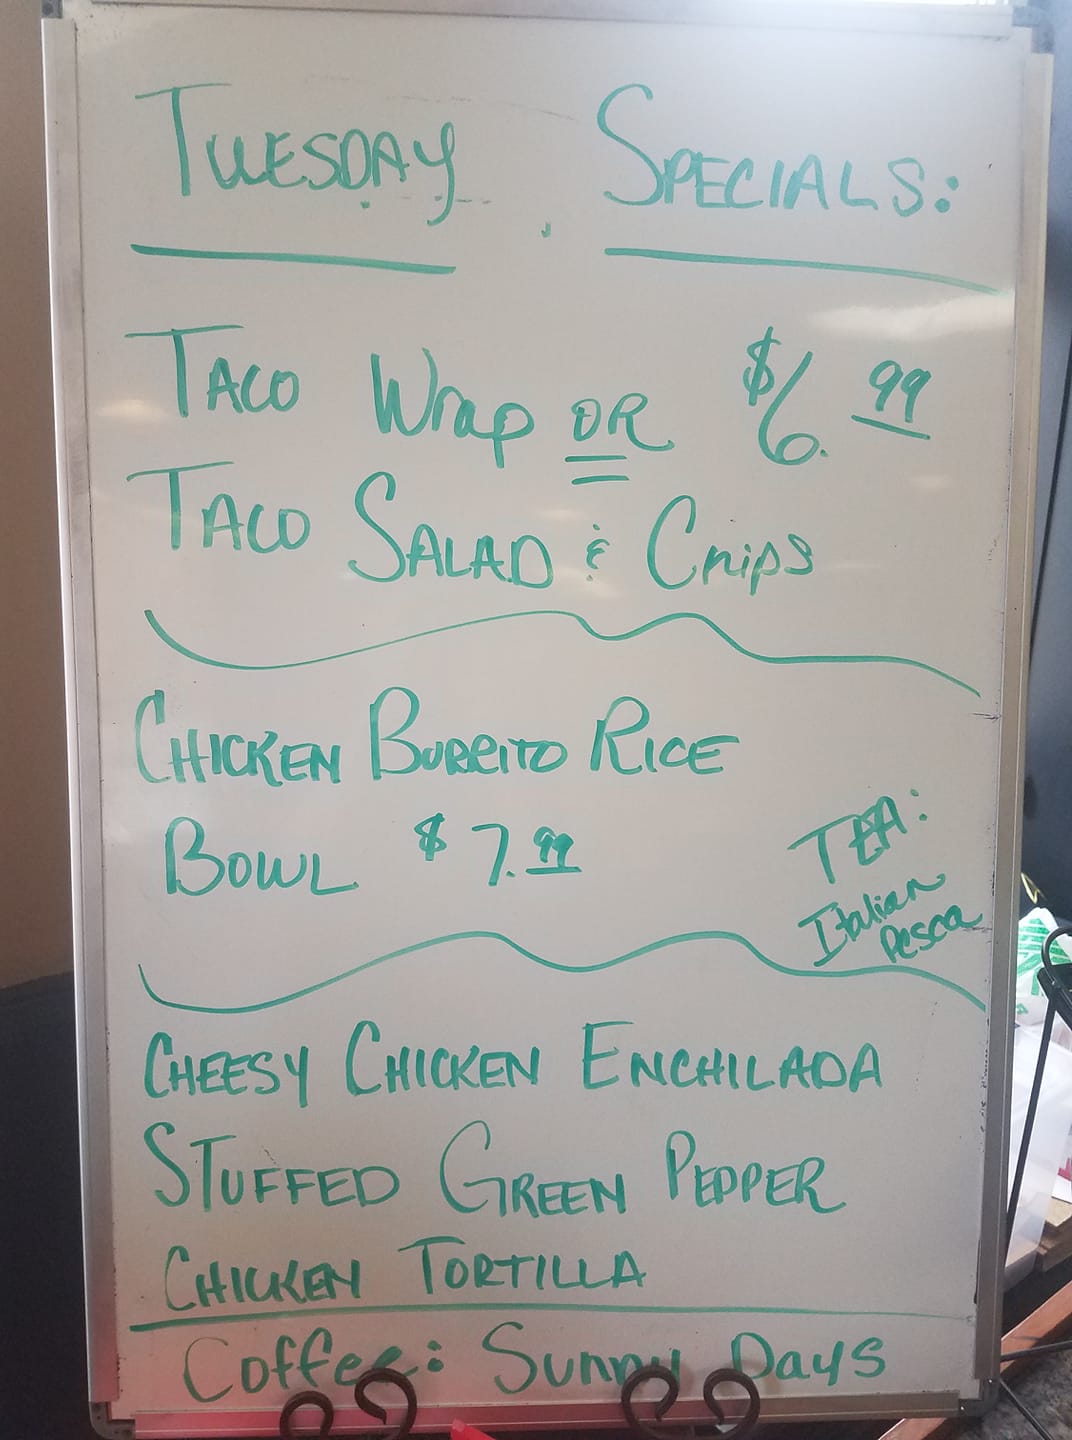 TUESDAY SPECIALS:
TACO Wrap OR $6.99
TACO SALAD & Chips
CHICKEN BURRITO RICE
BOWL $7.99
TEA:
Italian
Pesca
CHEESY CHICKEN ENCHILADA
STUFFED GREEN PEPPER
CHICKEN TORTILLA
Coffee: Sunny Days